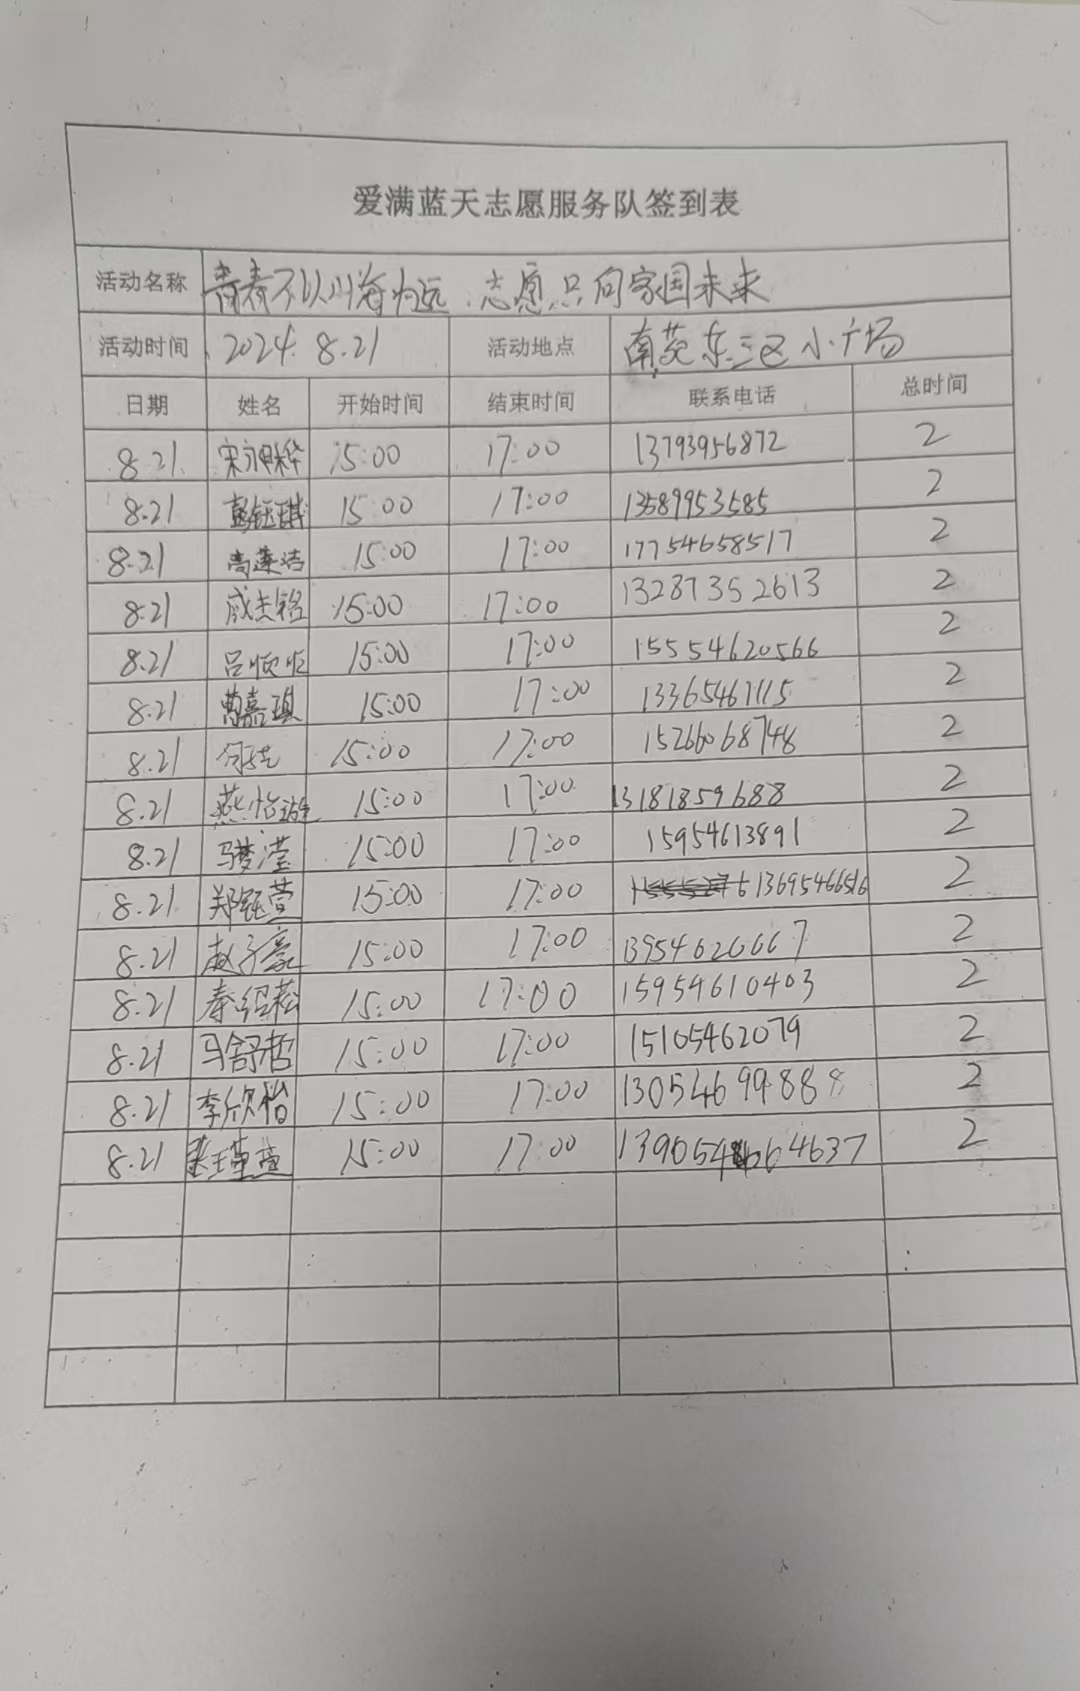 爱满蓝天志愿服务队签到表
活动名称 青春不以山海为远 志愿只向家国未来
活动时间 2024. 8.21 活动地点 南苑东三区小广场
日期 姓名 开始时间 结束时间 联系电话 总时间
8.21 宋 15:00 17:00 13793956872 2
8.21 彭钰琪 15:00 17:00 13589953585 2
8.21 高莲洁 15:00 17:00 17754658517 2
8.21 戚志铭 15:00 17:00 13287352613 2
8.21 吕顺顺 15:00 17:00 15554620566 2
8.21 曹嘉琪 15:00 17:00 13365467115 2
8.21 15:00 17:00 15266068748 2
8.21 燕怡 15:00 17:00 13181859688 2
8.21 马梦滢 15:00 17:00 15954613891 2
8.21 郑钰萱 15:00 17:00 13695466516 2
8.21 赵子豪 15:00 17:00 13954620667 2
8.21 秦绍菘 15:00 17:00 15954610403 2
8.21 马舒哲 15:00 17:00 15105462079 2
8.21 李欣怡 15:00 17:00 13054699888 2
8.21 张瑾萱 15:00 17:00 2